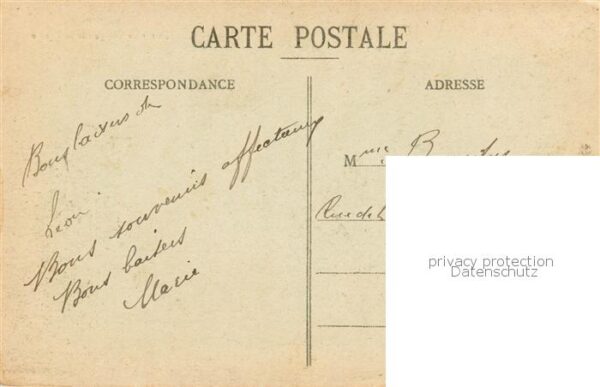 CARTE POSTALE
CORRESPONDANCE
ADRESSE
Bons baisers de
Léon
Bons souvenirs affectueux
Bons baisers
Marie
Mme
Rue de
privacy protection
Datenschutz